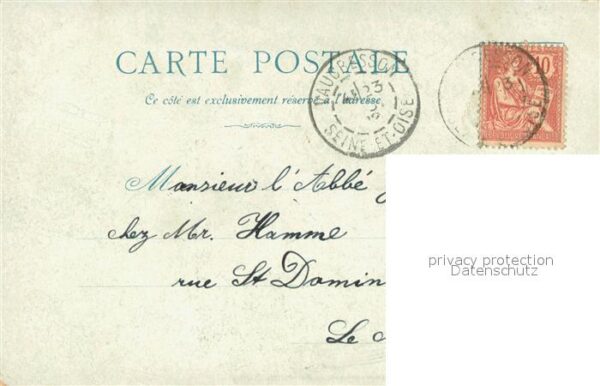 CARTE POSTALE
Ce côté est exclusivement réservé à l'adresse
VAUCRESSON
23
SEINE-ET-OISE
10
Monsieur l'Abbé
chez Mr. Hamme
rue St Domin
Le
privacy protection
Datenschutz